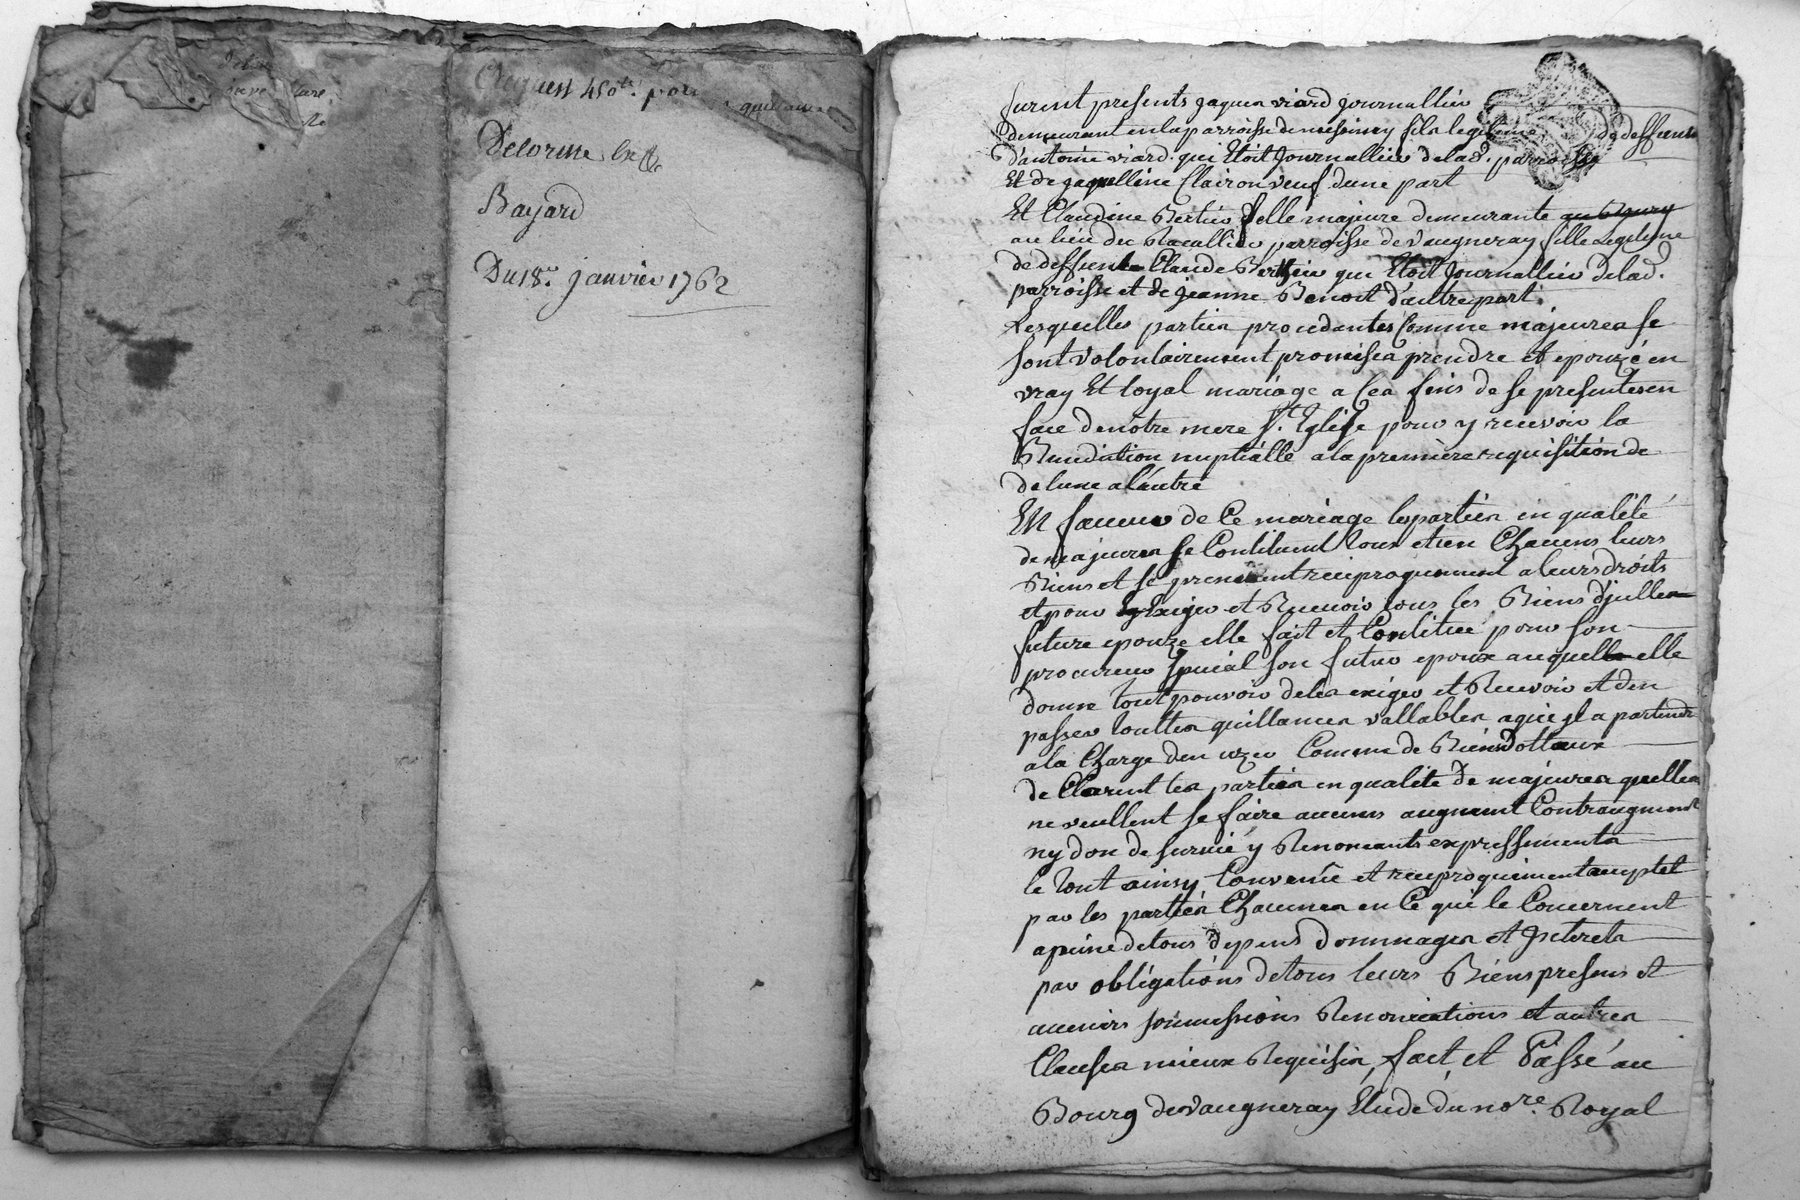 Acquest 450lt. pour
Delorme
Bayard
Du 18e. janvier 1762
furent presents jaques viard journallier
demeurant en la parroisse de messimy fils legitime de deffunt
d'antoine viard. qui Etoit journallier de lad. parroisse
Et de jaquelline Clairon veuf d'une part
Et Claudine Bertier fille majeure demeurante au Bourg
au lieu du parroisse de vaugneray fille Legitime
de deffunt Claude Berthier qui Etoit journallier de lad.
parroisse et de jeanne Benoit d'autre part.
Lesquelles parties procedantes Comme majeures se
sont volontairement promises prendre et epouzé en
vray Et loyal mariage a Ces fins de se presenter en
face de notre mere Ste. Eglise pour y recevoir la
Benediction nuptialle a la premiere requisition de
de lune a l'autre
En faveur de Ce mariage les parties en qualité
de majeures se Constituent tous et un Chacuns leurs
Biens et se prennent reciproquement a leurs droits
et pour Exiger et Recevoir tous les Biens d'jcelle
future epouze elle fait et Constitue pour son
procureur special son futur epoux auquel elle
donne tout pouvoir de les exiger et Recevoir et d'en
passer touttes quittances vallables a qui jl apartiendra
a la Charge d'en uzer Comme de Biens Dottaux
de Clarent les parties en qualité de majeures quelles
ne veullent se faire aucuns augment Contraugment
ny don de survie y Renonceants expressements
le tout ainsy Convenue et reciproquement acceptet
par les parties Chacunes en Ce qui le Concernent
a peine de tous depens dommages et jnterets
par obligations de tous leurs Biens presens et
avenirs soumissions Renonciations et autres
Clauses mieux Requises, fait et Passé au
Bourg de vaugneray Etude du nore. Royal